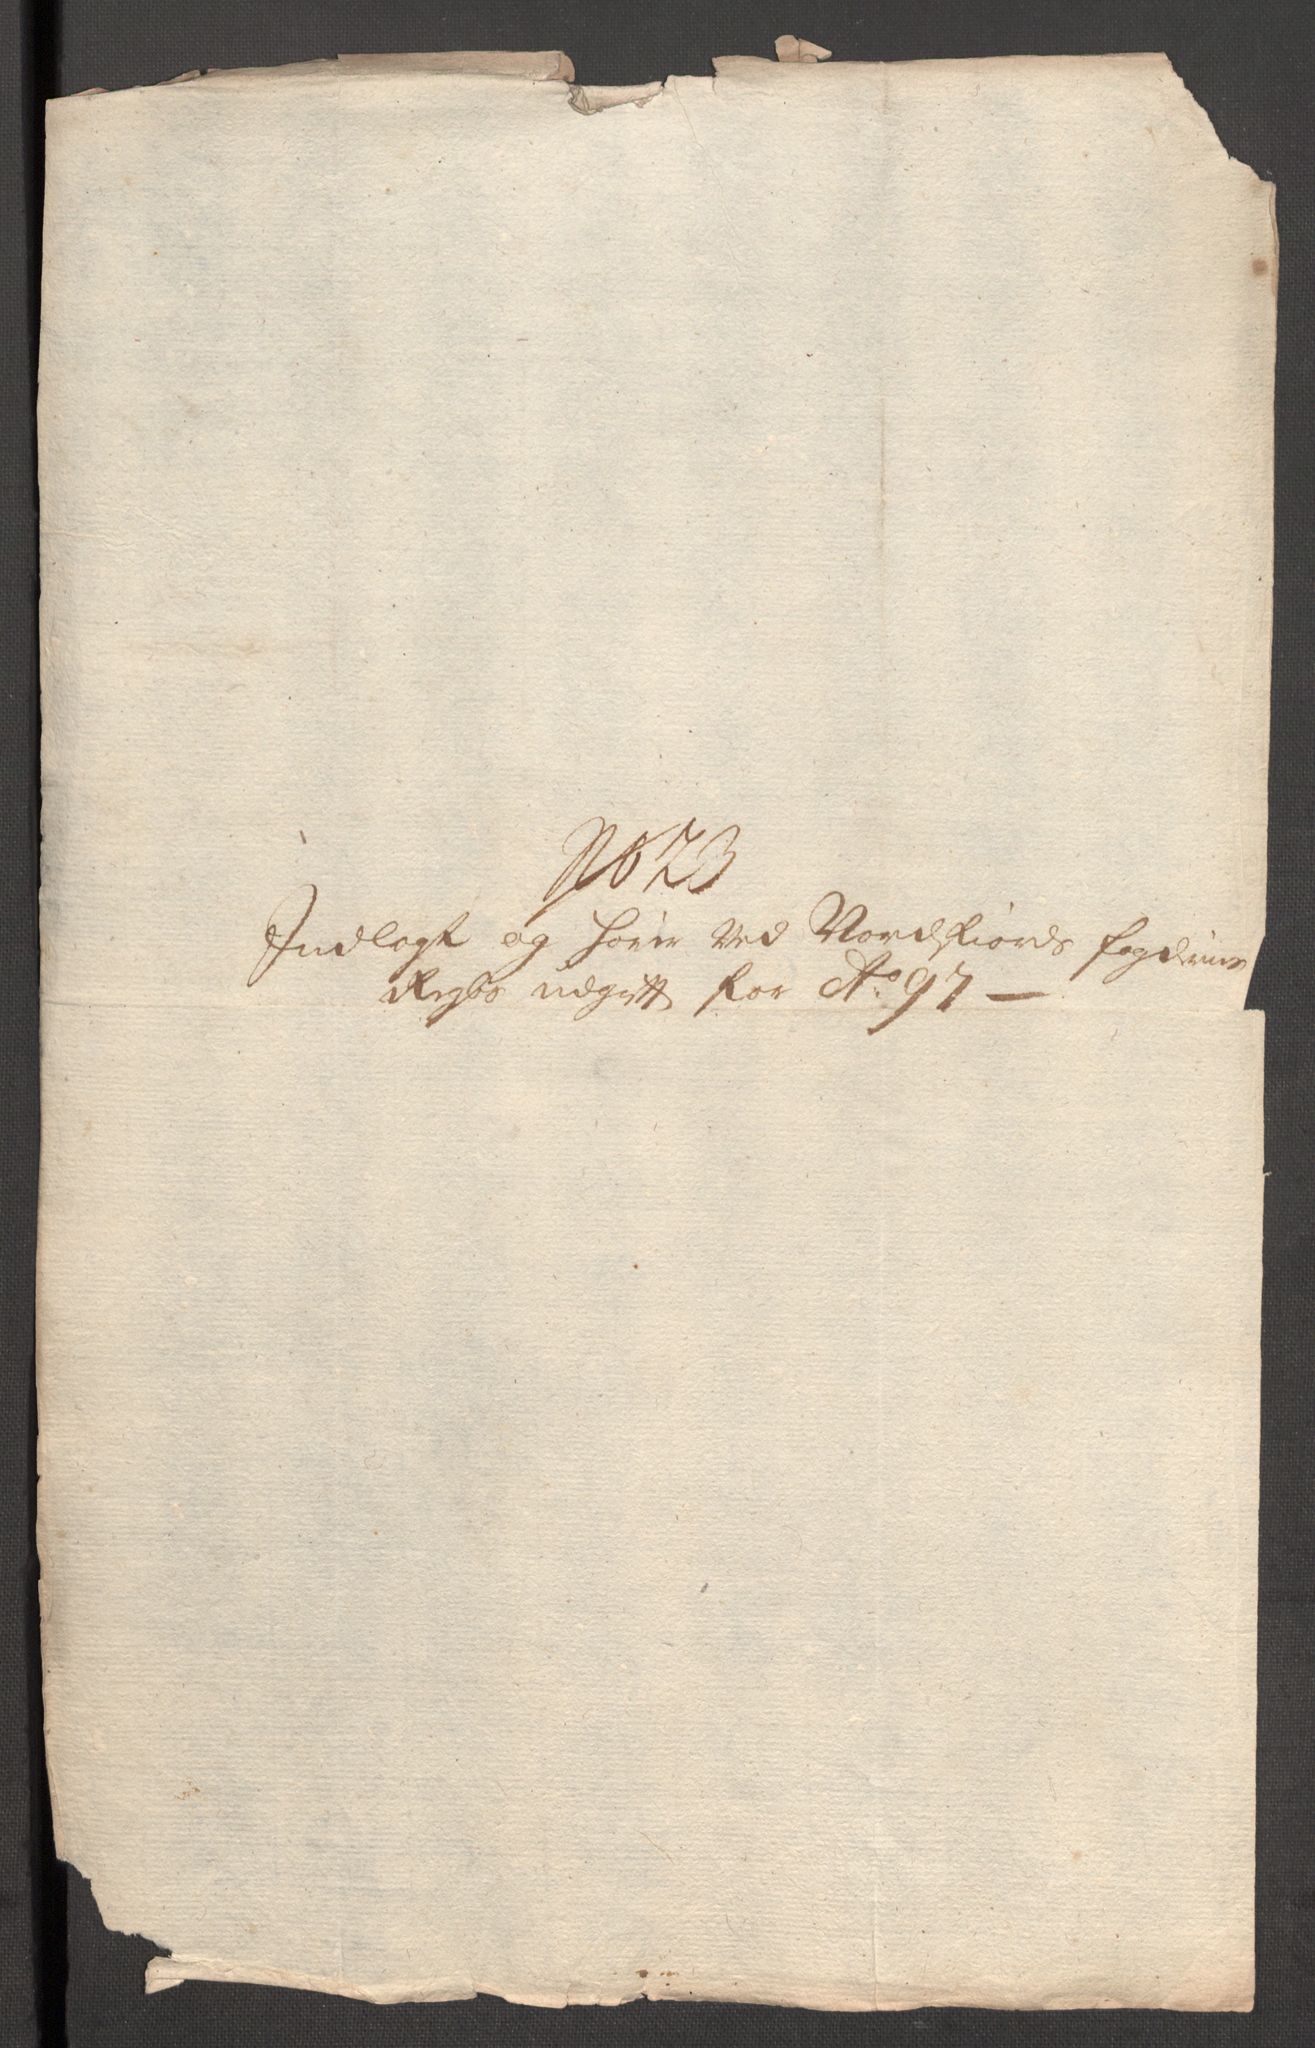 No 23
Indlagt og hörer ved Nordfiords fogderies
Regbs udgifft for Ao. 97 —